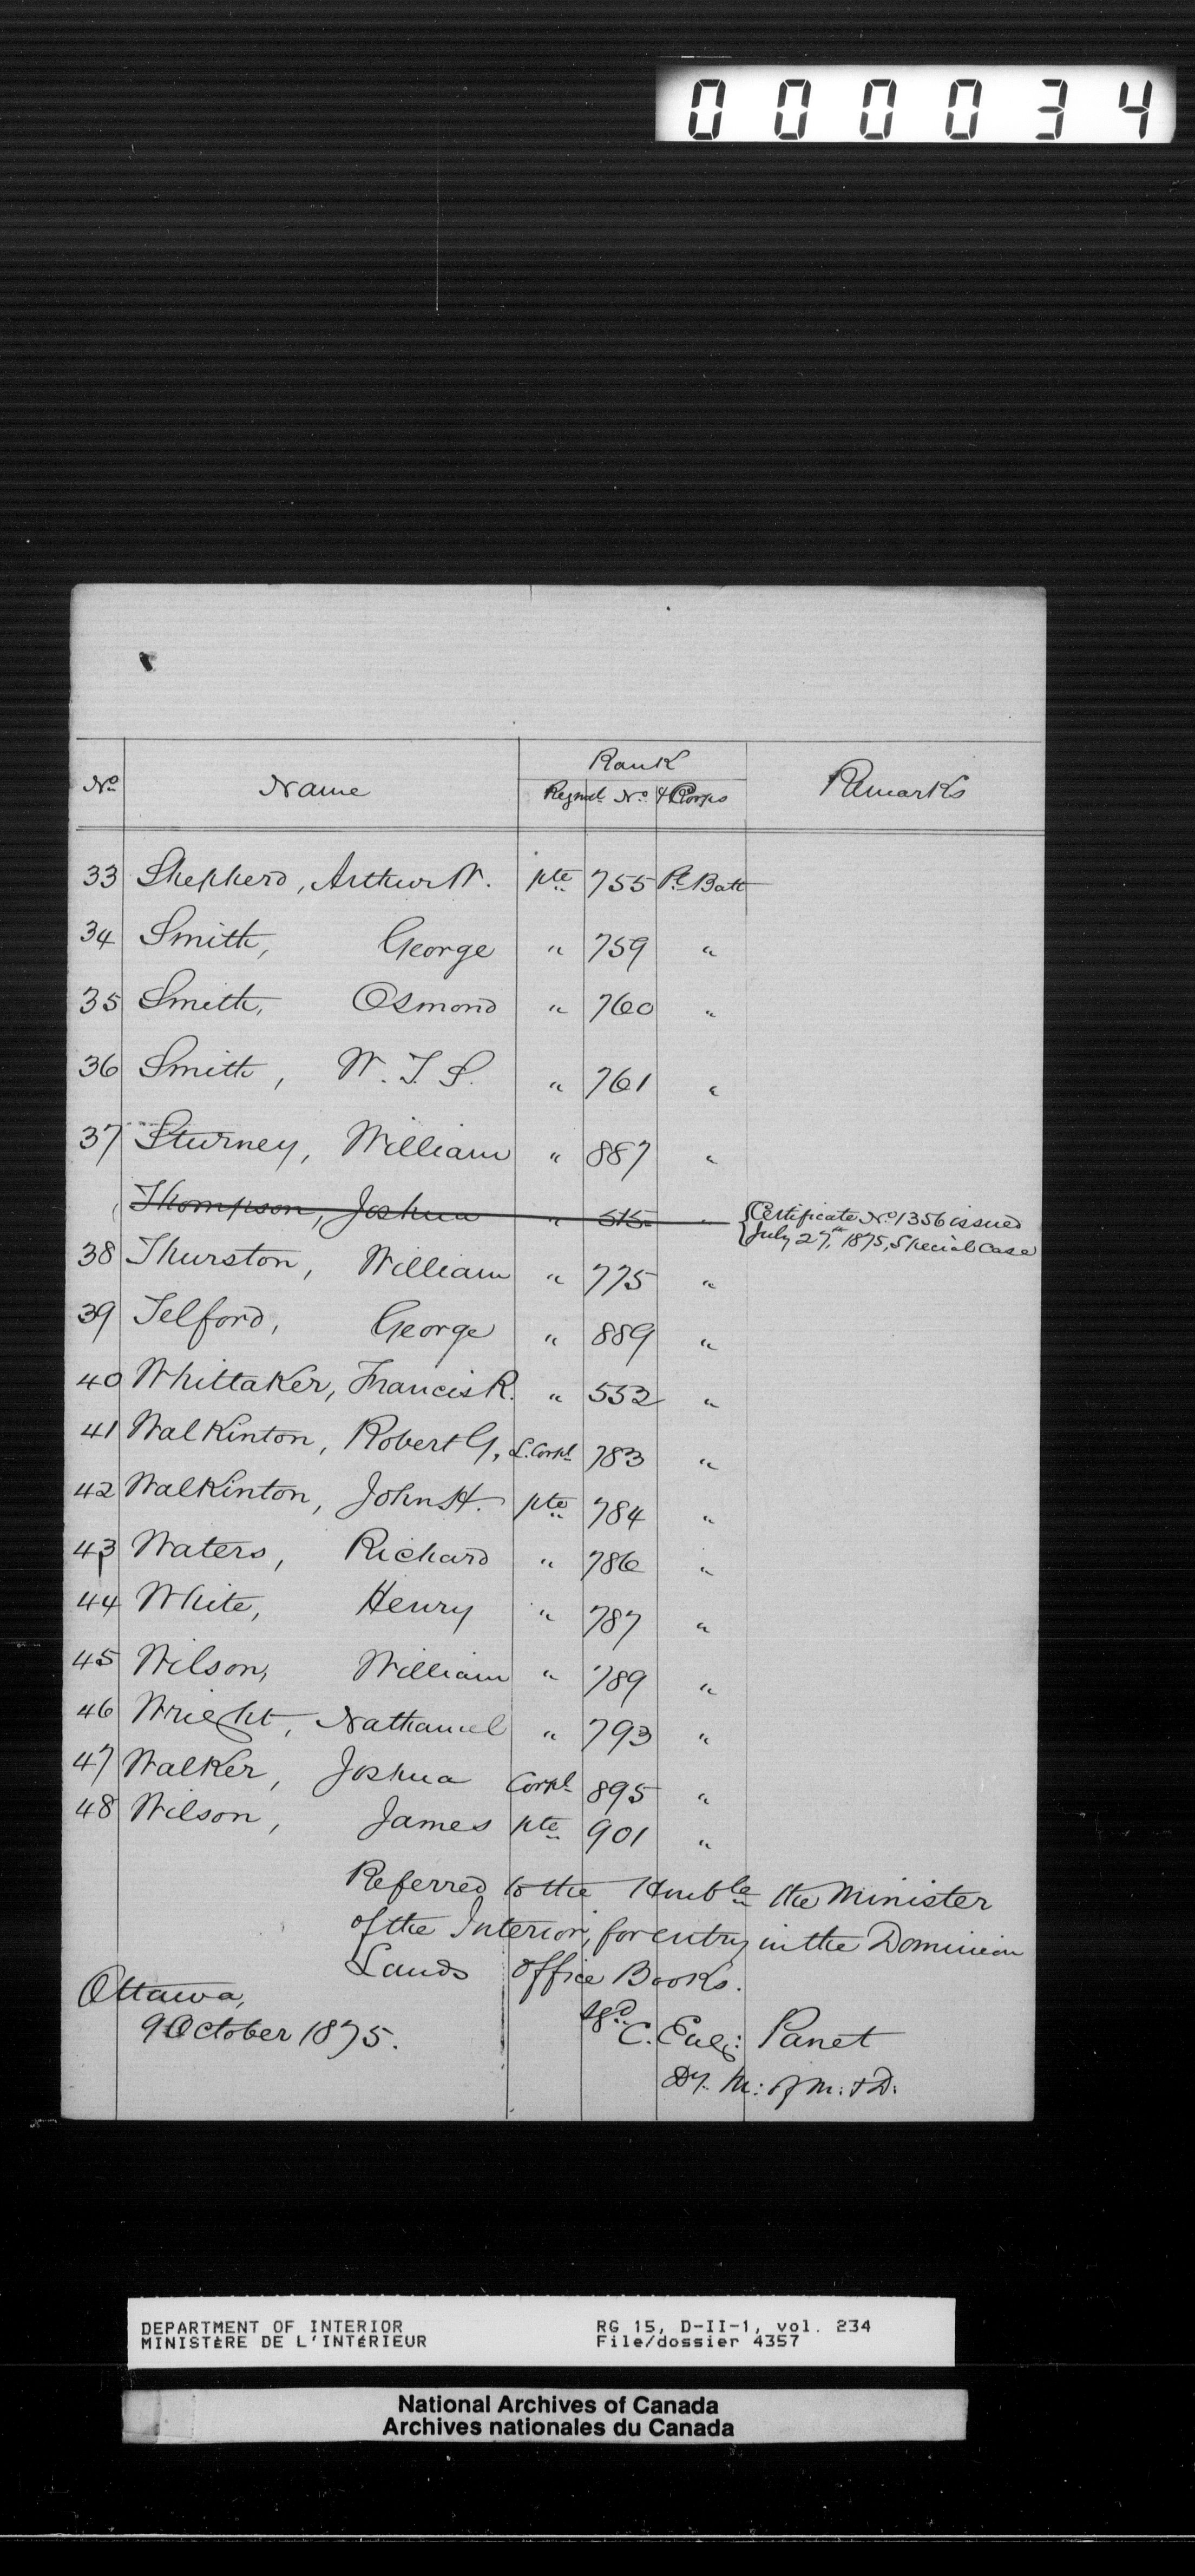 000034
Rank
No Name Regimtl. No. & Corps Remarks
33 Shepherd, Arthur W. pte 755 P. Batt
34 Smith, George " 759 "
35 Smith, Osmond " 760 "
36 Smith, W. T. S. " 761 "
37 Sturney, William " 887 "
Thompson, Joshua " 515 " { Certificate No. 1356 issued
July 27th, 1875, Special Case
38 Thurston, William " 775 "
39 Telford, George " 889 "
40 Whittaker, Francis R. " 552 "
41 Walkinton, Robert G. L. Corpl 783 "
42 Walkinton, John H. pte 784 "
43 Waters, Richard " 786 "
44 White, Henry " 787 "
45 Wilson, William " 789 "
46 Wright, Nathaniel " 793 "
47 Walker, Joshua Corpl 895 "
48 Wilson, James pte 901 "
Referred to the Honble the Minister
of the Interior, for entry in the Dominion
Lands Office Books.
Ottawa,
9 October 1875.
Sgd. C. Eug: Panet
Dy. M: of M: & D:
DEPARTMENT OF INTERIOR RG 15, D-II-1, vol. 234
MINISTÈRE DE L'INTÉRIEUR File/dossier 4357
National Archives of Canada
Archives nationales du Canada